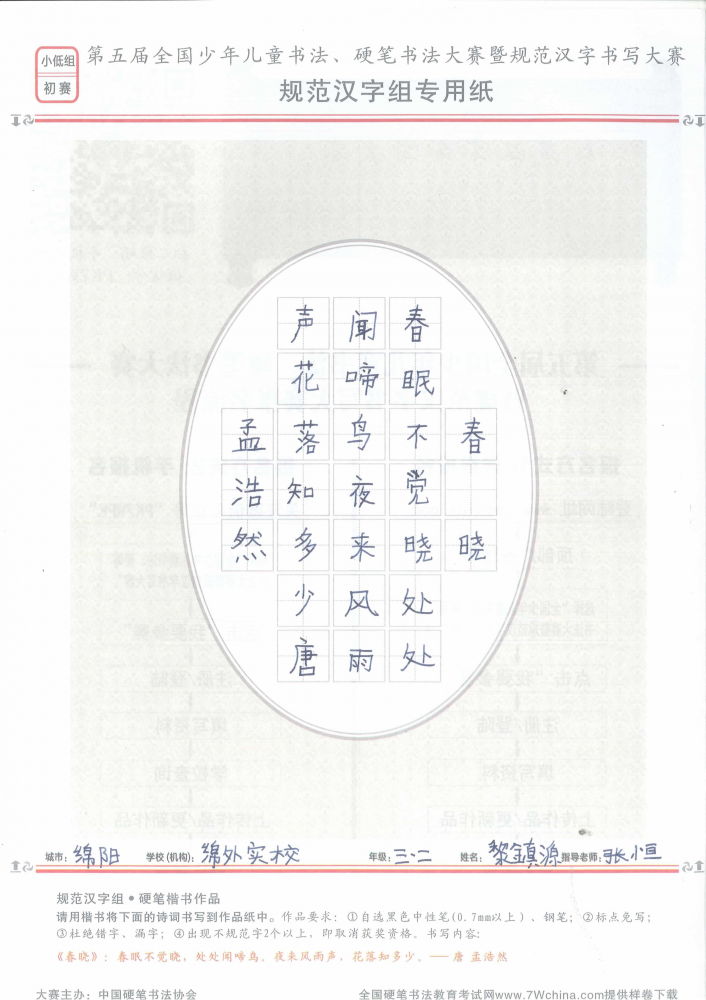 小低组
初赛
第五届全国少年儿童书法、硬笔书法大赛暨规范汉字书写大赛
规范汉字组专用纸
春晓
春眠不觉晓处处
闻啼鸟夜来风雨
声花落知多少唐
孟浩然
城市：绵阳 学校(机构)：绵外实校 年级：三·二 姓名：黎鎮源 指导老师：张恒
规范汉字组•硬笔楷书作品
请用楷书将下面的诗词书写到作品纸中。作品要求：①自选黑色中性笔(0.7mm以上)、钢笔；②标点免写；
③杜绝错字、漏字；④出现不规范字2个以上，即取消获奖资格。书写内容：
《春晓》：春眠不觉晓，处处闻啼鸟。夜来风雨声，花落知多少。——唐 孟浩然
大赛主办：中国硬笔书法协会 全国硬笔书法教育考试网www.7Wchina.com提供样卷下载